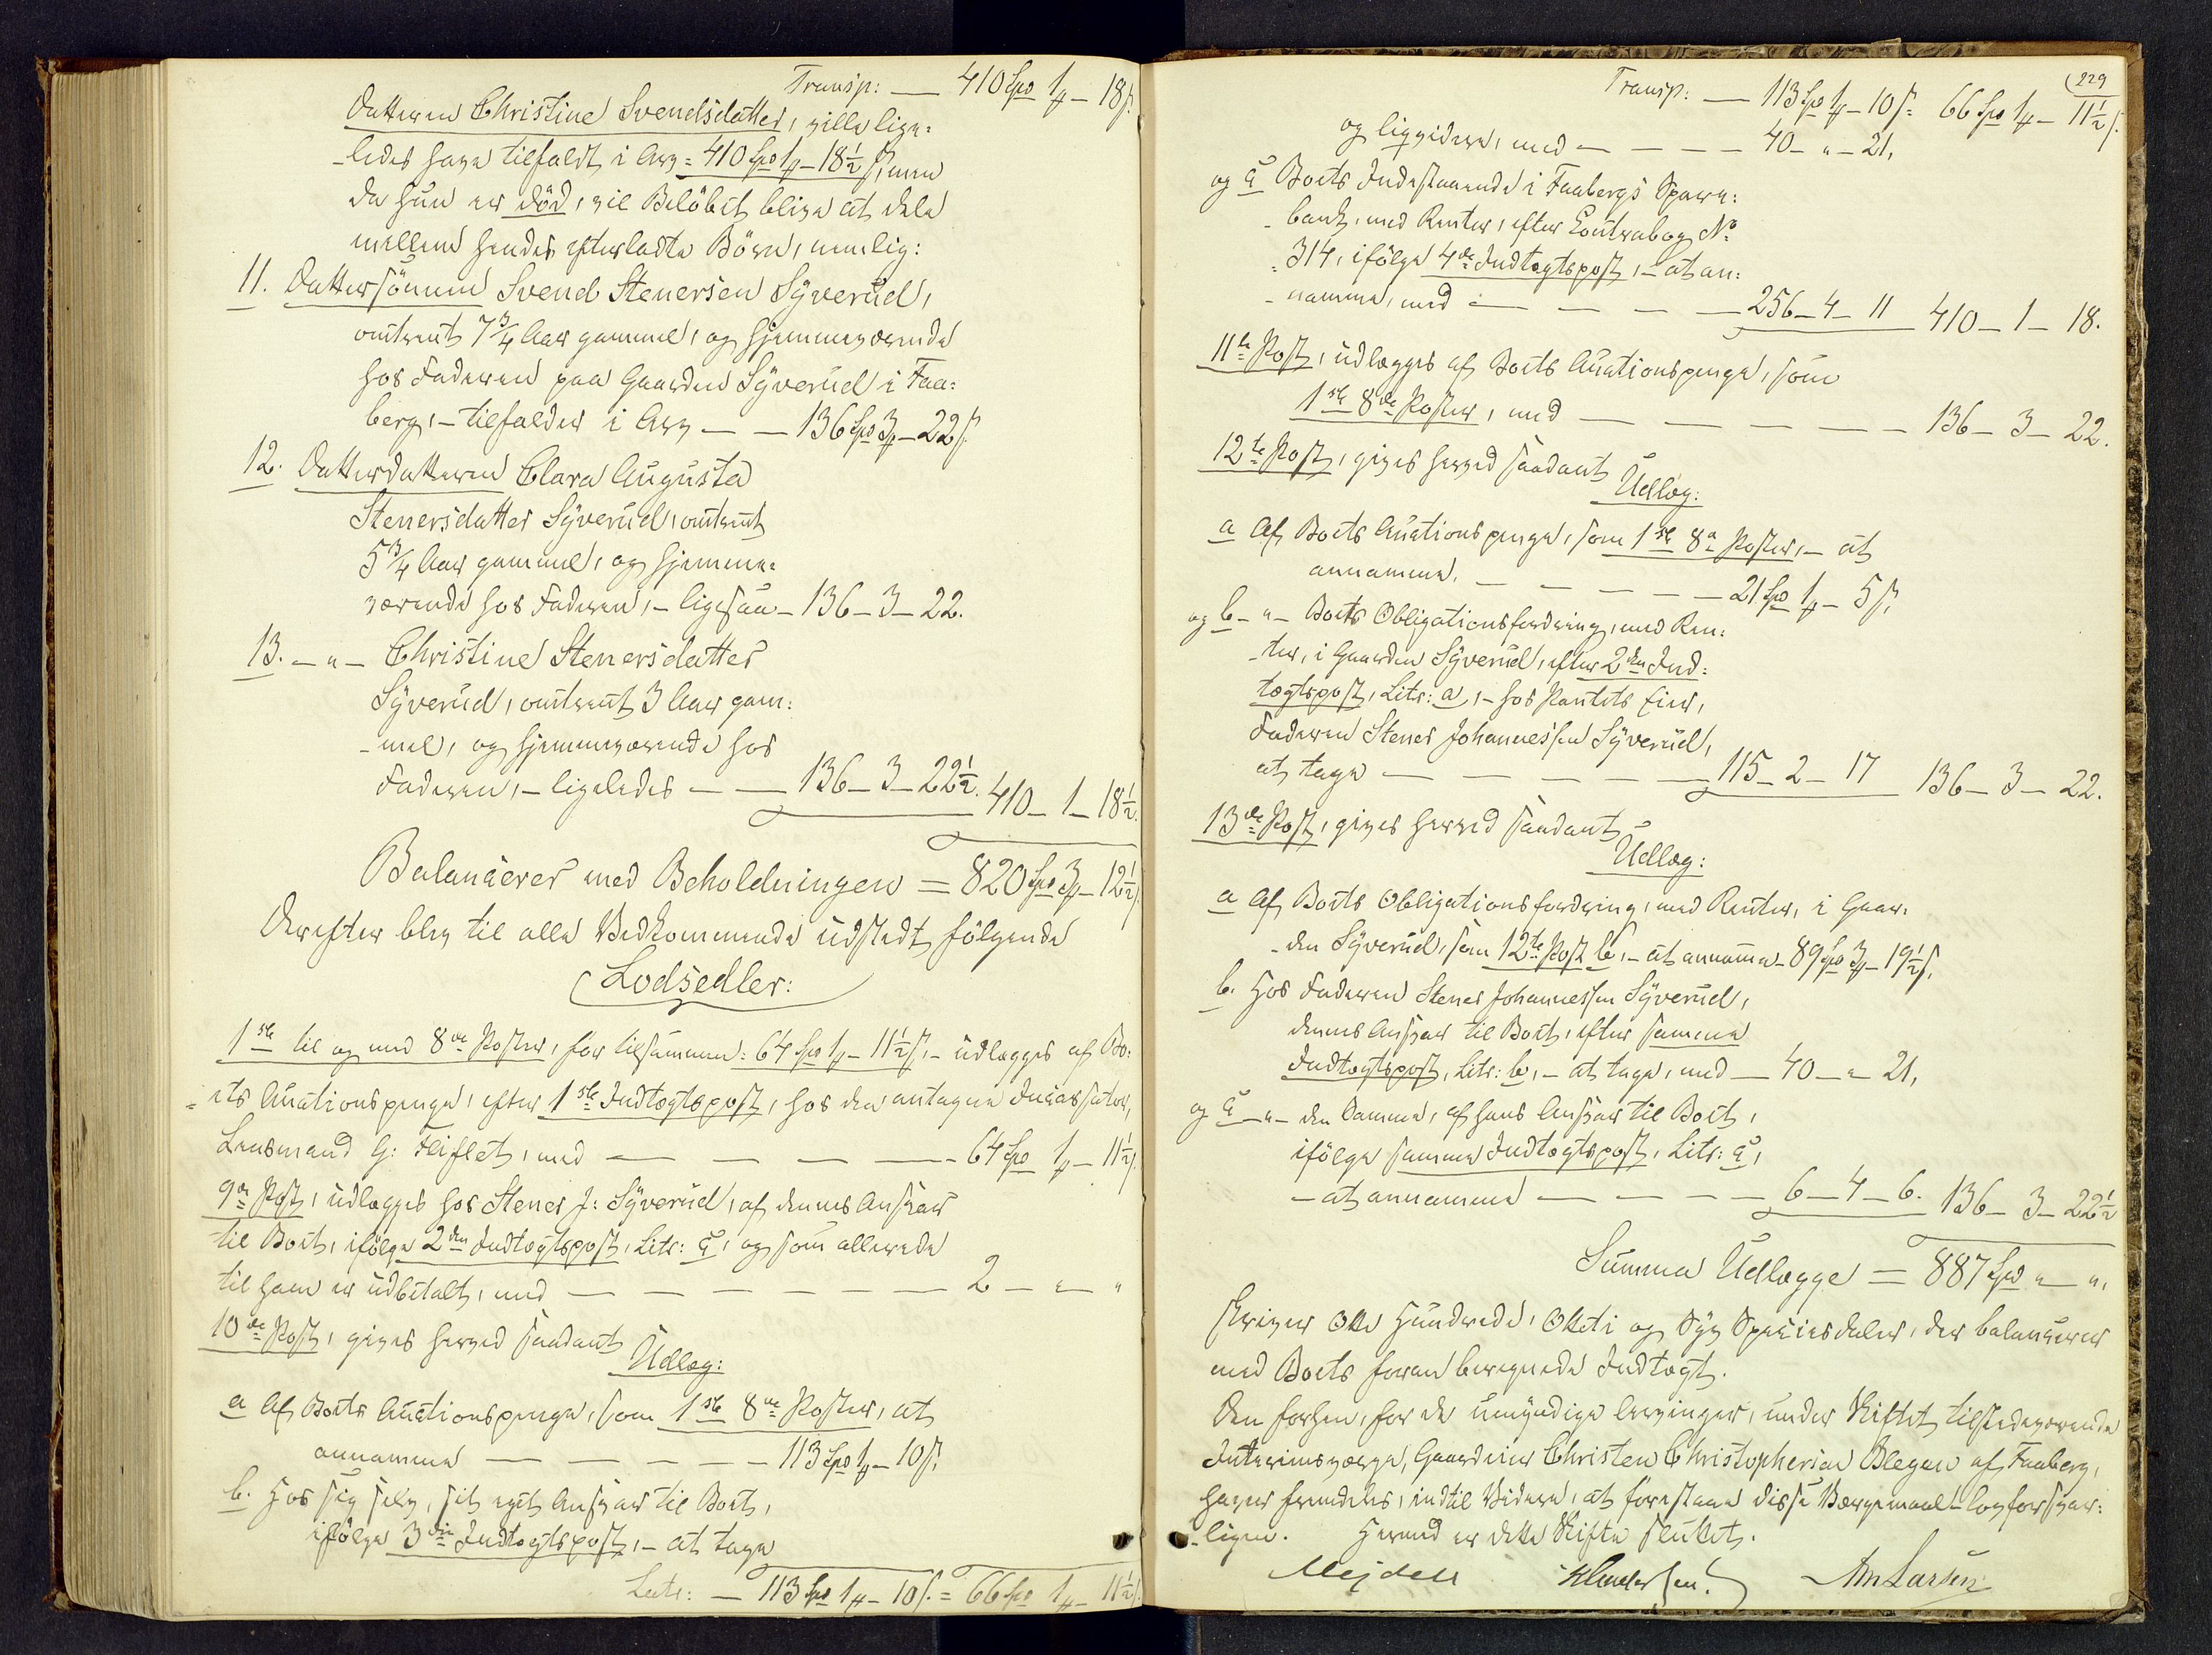 Transp: — 410 Spd 1 ₰ – 18 ß.
Datteren Christine Svendsdatter, vilde lige-
-ledes have tilfaldt i Arv = 410 Spd 1 ₰ – 18½ ß, men
da hun er död, vil Belöbet blive at dele
mellem hendes efterladte Börn, nemlig:
11. Dattersönnen Svend Stenersen Syverud,
omtrent 7¾ Aar gammel, og hjemmeværende
hos Faderen paa Gaarden Syverud i Faa-
berg, – tilfalder i Arv — — 136 Spd 3 ₰ – 22 ß.
12. Datterdatteren Clara Augusta
Stenersdatter Syverud, omtrent
5¾ Aar gammel, og hjemme-
værende hos Faderen, – ligesaa – 136 – 3 – 22.
13. – " – Christine Stenersdatter
Syverud, omtrent 3 Aar gam-
-mel, og hjemmeværende hos
Faderen, – ligeledes — — 136 – 3 – 22½. 410 – 1 – 18½.
Balancerer med Beholdningen = 820 Spd 3 ₰ – 12½ ß.
Derefter blev til alle Vedkommende udstedt følgende
Lodsedler:
1ste til og med 8de Poster, for tilsammen: 64 Spd 1 ₰ – 11½ ß, – udlægges af Bo-
-ets Auctionspenge, efter 1ste Indtægtspost, hos den antagne Incassator,
Lensmand G: Fliflet, med — — — — 64 Spd 1 ₰ – 11½ ß.
9de Post, udlægges hos Stener J: Syverud, af dennes Ansvar
til Boet, ifölge 2den Indtægtspost, Litr: c, og som allerede
til ham er udbetalt, med — — — — — — 2 – " – "
10de Post, gives herved saadant
Udlæg:
a Af Boets Auctionspenge, som 1ste 8de Poster, at
annamme — — — — — 113 Spd 1 ₰ – 10 ß.
b. Hos sig selv, sit eget Ansvar til Boet,
ifölge 3die Indtægtspost, – at tage
Lats: — 113 Spd 1 ₰ – 10 ß. = 66 Spd 1 ₰ – 11½ ß.
229
Transp: — 113 Spd 1 ₰ – 10 ß = 66 Spd 1 ₰ – 11½ ß.
og liqvidere, med — — — — 40 – " – 21.
og c Boets Indestaaende i Faabergs Spare-
-bank, med Renter, efter Contrabog No
314, ifölge 4de Indtægtspost, – at an-
-namme, med — — — — 256 – 4 – 11 410 – 1 – 18.
11te Post, udlægges af Boets Auctionspenge, som
1ste 8de Poster, med — — — — — 136 – 3 – 22.
12te Post, gives herved saadant
Udlæg:
a Af Boets Auctionspenge, som 1ste 8de Poster, – at
annamme. — — — — — 21 Spd 1 ₰ – 5 ß.
og b – " – Boets Obligationsfordring, med Ren-
-ter, i Gaarden Syverud, efter 2den Ind-
tægtspost, Litr: a, – hos Pantets Eier,
Faderen Stener Johannessen Syverud,
at tage — — — — — 115 – 2 – 17 136 – 3 – 22.
13de Post, gives herved saadant
Udlæg:
a Af Boets Obligationsfordring, med Renter, i Gaar-
-den Syverud, som 12te Post b, – at annamme – 89 Spd 3 ₰ – 19½ ß.
b. Hos Faderen Stener Johannessen Syverud,
dennes Ansvar til Boet, efter samme
Indtægtspost, Litr: b, – at tage, med — 40 – " – 21.
og c – " – den Samme, af hans Ansvar til Boet,
ifölge samme Indtægtspost, Litr: c,
– at annamme — — — — 6 – 4 – 6. 136 – 3 – 22½
Summa Udlægge = 887 Spd " – ".
skriver Otte Hundrede, Otteti og Syv Speciesdaler, der balancerer
med Boets foran beregnede Indtægt.
Den forhen, for de umyndige Arvinger, under Skiftet tilstedeværende
Interimsværge, Gaardeier Christen Christophersen Blegen af Faaberg,
haver fremdeles, indtil Videre, at forestaae disse Værgemaal lovforsvar-
-ligen. Hermed er dette Skifte sluttet.
Mejdell Am Larsen